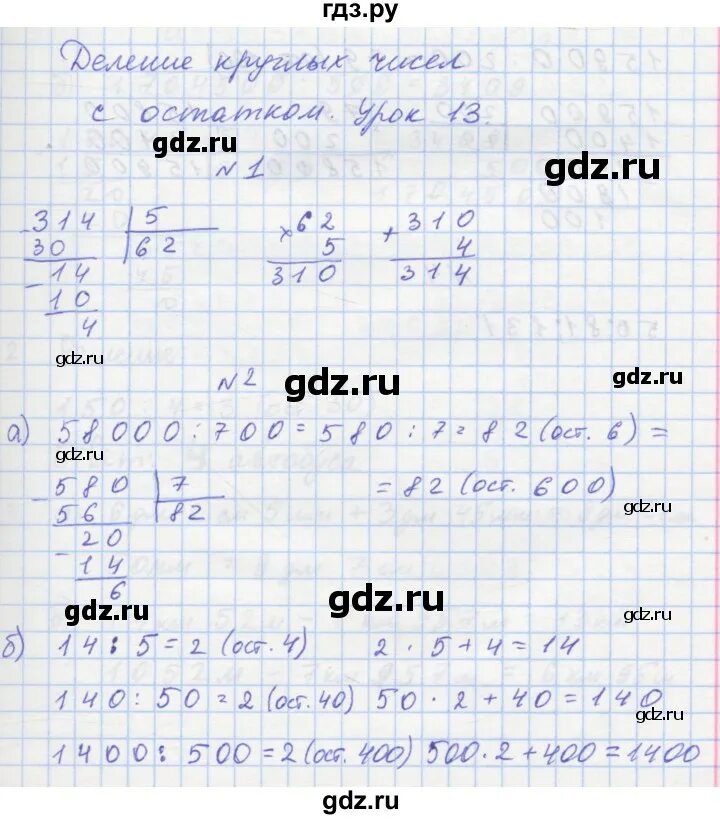 гдз.ру
Деление круглых чисел
с остатком. Урок 13.
gdz.ru gdz.ru
№1
314 5 62 310
- 30 62 × 5 + 4
- 14 310 314
10
4
gdz.ru
№2 gdz.ru gdz.ru
а) 58000:700=580:7=82(ост. 6)=
gdz.ru
- 580 7 =82(ост. 600)
56 82 gdz.ru
- 20
14
6
gdz.ru gdz.ru gdz.ru
б) 14:5=2(ост.4) 2·5+4=14
140:50=2(ост.40) 50·2+40=140
1400:500=2(ост.400) 500·2+400=1400
gdz.ru gdz.ru
gdz.ru